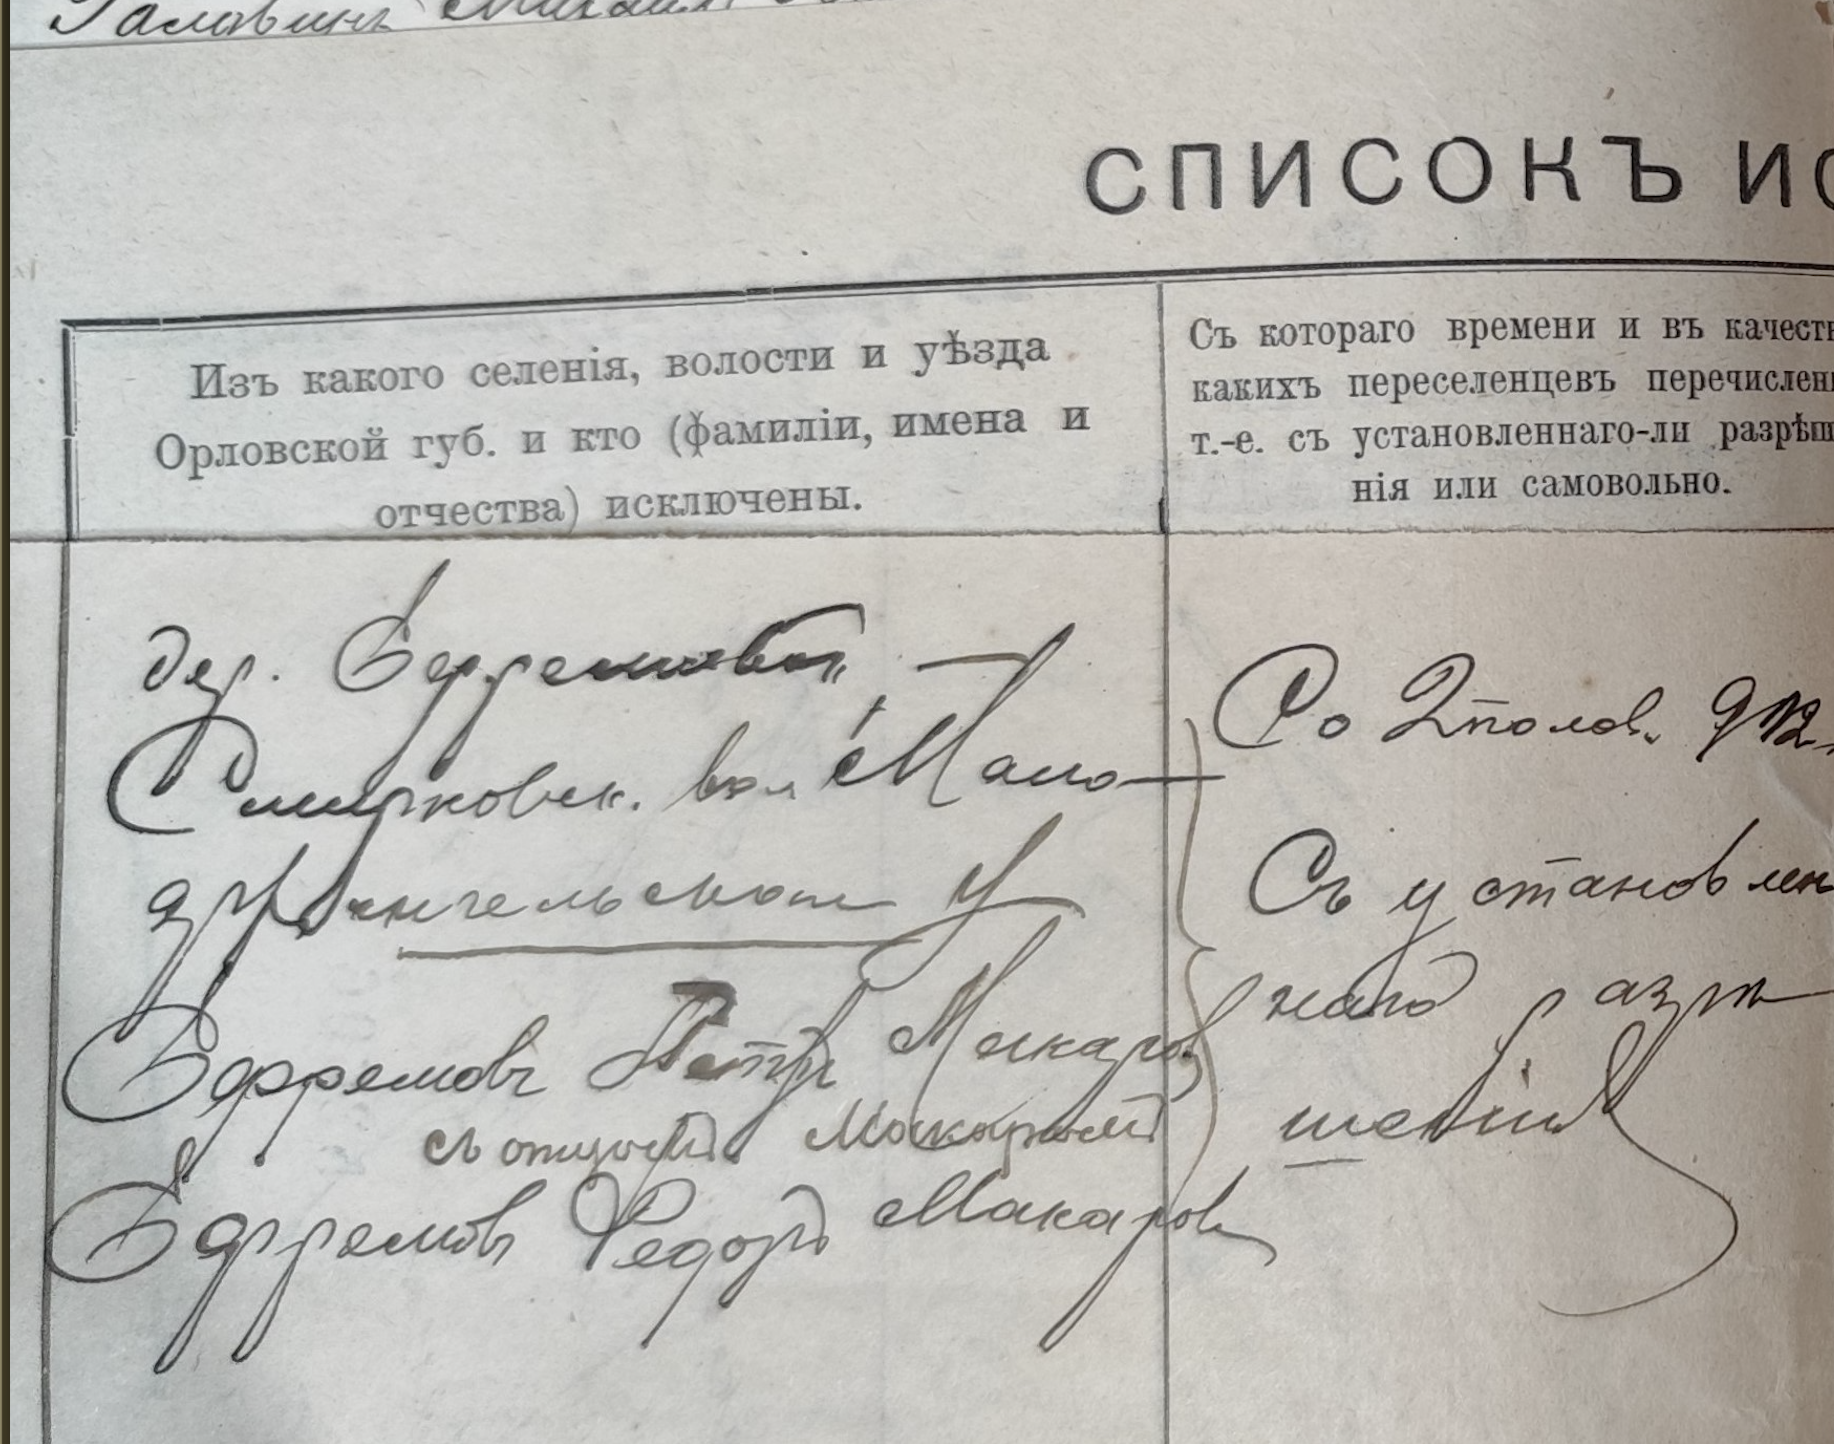 Головинъ Михаил
СПИСОКЪ ИС
Изъ какого селенія, волости и уѣзда
Орловской губ. и кто (фамиліи, имена и
отчества) исключены.
Съ котораго времени и въ качеств
какихъ переселенцевъ перечислен
т.-е. съ установленнаго-ли разрѣш
нія или самовольно.
дер. Ефремовой, —
вол. Мало-
архангельскаго у
Ефремовъ Петръ Макаров
съ отцомъ Макаромъ
Ефремовъ Федоръ Макаров
Со 2 полов. 912
Съ установлен
наго разрѣ
шенія